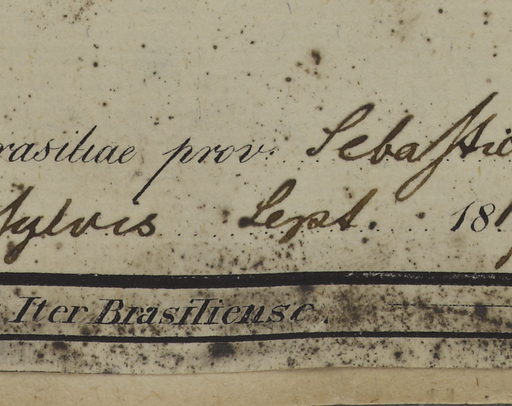 rasiliae prov. Sebastia
Sylvis Sept. 181
Iter Brasiliense.